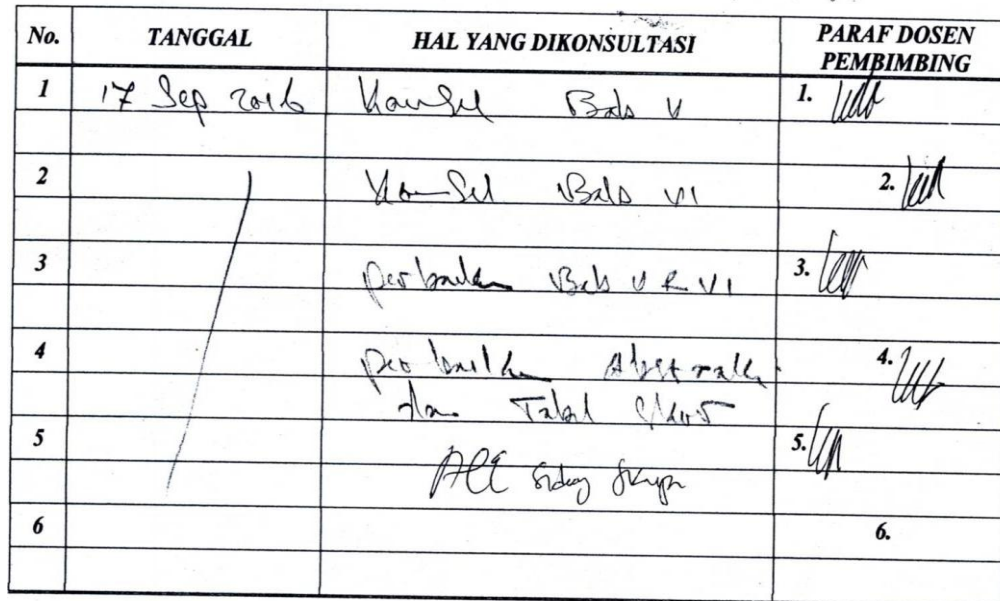 No. TANGGAL HAL YANG DIKONSULTASI PARAF DOSEN PEMBIMBING
1 17 Sep 2016 Konsul Bab V 1.
2 Konsul Bab VI 2.
3 perbaikan Bab V & VI 3.
4 perbaikan Abstrak 4.
dan Tabel
5 ACC Sidang Skripsi 5.
6 6.